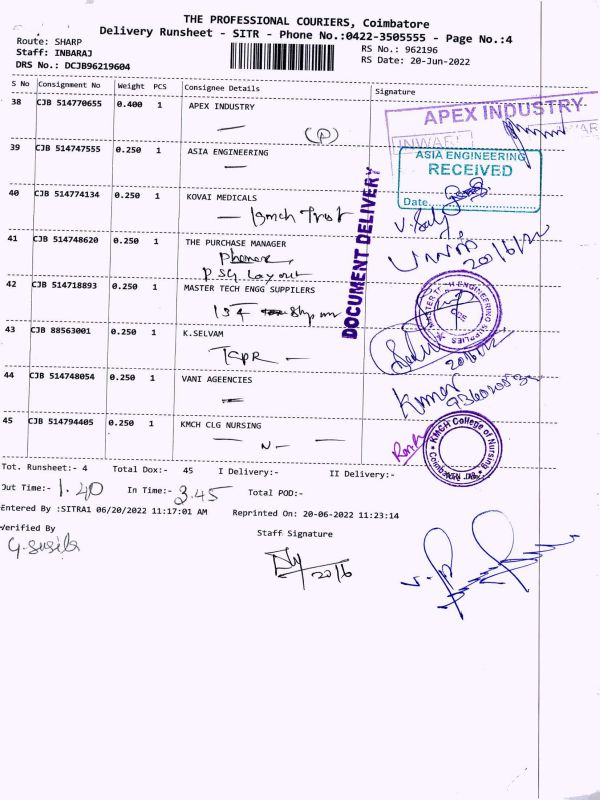 THE PROFESSIONAL COURIERS, Coimbatore
Delivery Runsheet - SITR - Phone No.:0422-3505555 - Page No.:4
Route: SHARP
Staff: INBARAJ
DRS No.: DCJB96219604
RS No.: 962196
RS Date: 20-Jun-2022
S No Consignment No Weight PCS Consignee Details Signature
38 CJB 514770655 0.400 1 APEX INDUSTRY
(A)
APEX INDUSTRY
INWARD
39 CJB 514747555 0.250 1 ASIA ENGINEERING
ASIA ENGINEERING
RECEIVED
Date
40 CJB 514774134 0.250 1 KOVAI MEDICALS
kmch Trust
41 CJB 514748620 0.250 1 THE PURCHASE MANAGER
PSG Layout
20/6/22
DOCUMENT DELIVERY
42 CJB 514718893 0.250 1 MASTER TECH ENGG SUPPILERS
MASTER TECH ENGINEERING SUPPLIES
CBE
43 CJB 88563001 0.250 1 K.SELVAM
20/6/22
44 CJB 514748054 0.250 1 VANI AGEENCIES
Kumar
45 CJB 514794405 0.250 1 KMCH CLG NURSING
N
KMCH College of Nursing
Tot. Runsheet:- 4 Total Dox:- 45 I Delivery:- II Delivery:-
Out Time:- 1.40 In Time:- 3.45 Total POD:-
Entered By :SITRA1 06/20/2022 11:17:01 AM Reprinted On: 20-06-2022 11:23:14
Verified By
G.Susila
Staff Signature
20/6